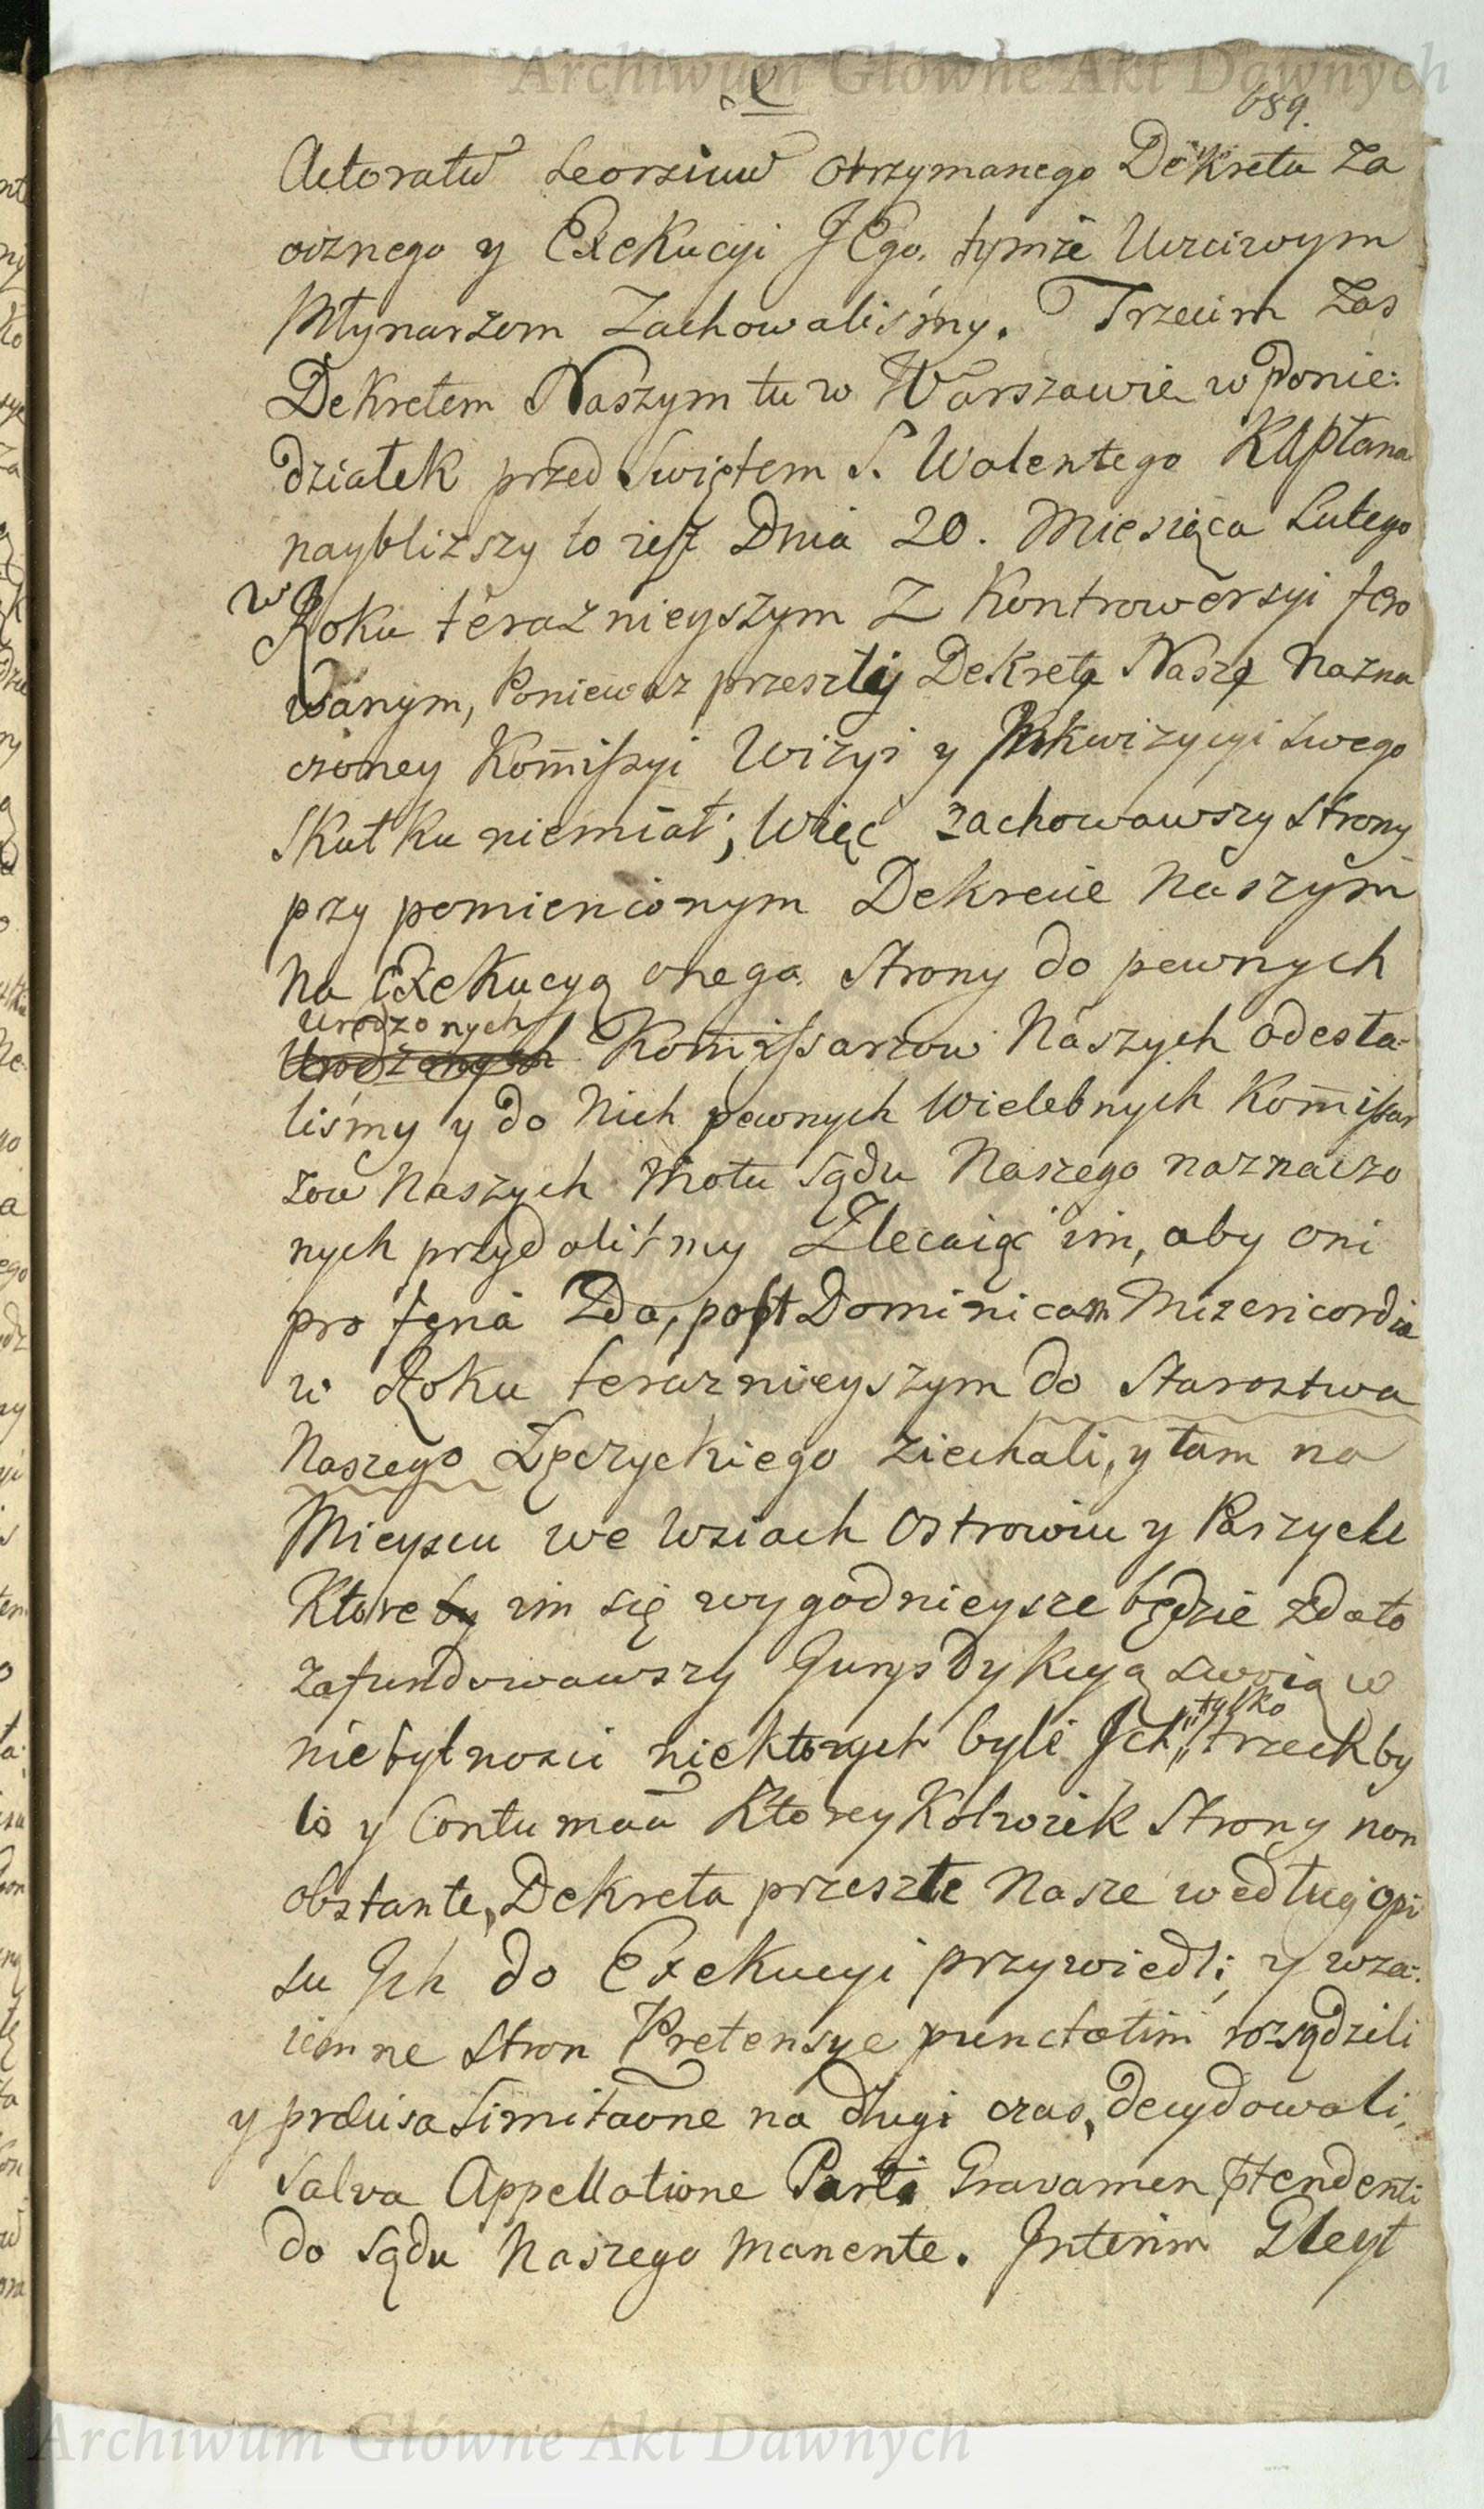 Archiwum Główne Akt Dawnych
659.
Actoratu seorsiuu otrzymanego Dekretu za
ocznego y Exekucyi JEgo. tymże Uczciwym
Młynarzom Zachowaliśmy. Trzecim zas
Dekretem Naszym tu w Warszawie w Ponie:
działek przed Swiętem S. Walentego Kapłana
naybliższy to iest Dnia 20. Miesięca Lutego
w Roku teraznieyszym Z Kontrowersyi fero
wanym, Poniewaz przeszłey Dekretę Naszę Nazna
czoney Komissyi Wizyi y Inkwizycyi swego
Skutku niemiał; Więc zachowawszy strony
przy pomienionym Dekrecie Naszym
Na Exekucyą onego Strony do pewnych
Urodzonych
Urodzonych Komissarzow Naszych odesła:
liśmy y do Nich pewnych Wielebnych Komissar
zow Naszych Motu Sądu Naszego naznaczo
nych przydaliśmy Zlecaiąc im, aby oni
pro feria 2da, post Dominicam Mizericordia
w Roku teraznieyszym do Starostwa
Naszego Łęczyckiego ziechali, y tam na
Mieyscu we Wsiach Ostrowiu y Parzyche
Ktore by im się wygodnieysze będzie zdało
zafundowawszy Jurysdykcyą swoią w
niebytnosci niektorych byle Jch "tylko" trzech by
ło y Contumacia Ktorey Kolwiek Strony non
obstante, Dekreta przeszłe Nasze według opi
su Jch do Exekucyi przywiedli; y wza:
iemne stron Pretensye punctatim rozsądzili
y præcisa limitaone na długi czas, decydowali,
Salva Appellatione Parti Gravamen ptendenti
do Sądu Naszego manente. Interim Gleyt
Archiwum Główne Akt Dawnych